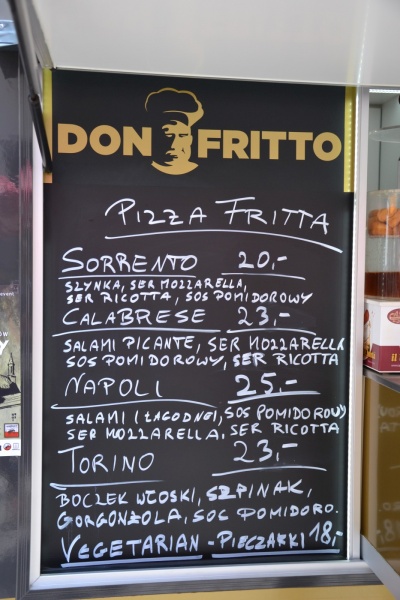 DON FRITTO
PIZZA FRITTA
SORRENTO 20,-
SZYNKA, SER MOZZARELLA,
SER RICOTTA, SOS POMIDOROWY
CALABRESE 23,-
SALAMI PICANTE, SER MOZZARELLA
SOS POMIDOROWY, SER RICOTTA
NAPOLI 25,-
SALAMI (ŁAGODNE), SOS POMIDOROWY
SER MOZZARELLA, SER RICOTTA
TORINO 23,-
BOCZEK WŁOSKI, SZPINAK,
GORGONZOLA, SOS POMIDORO.
VEGETARIAN - PIECZARKI 18,-